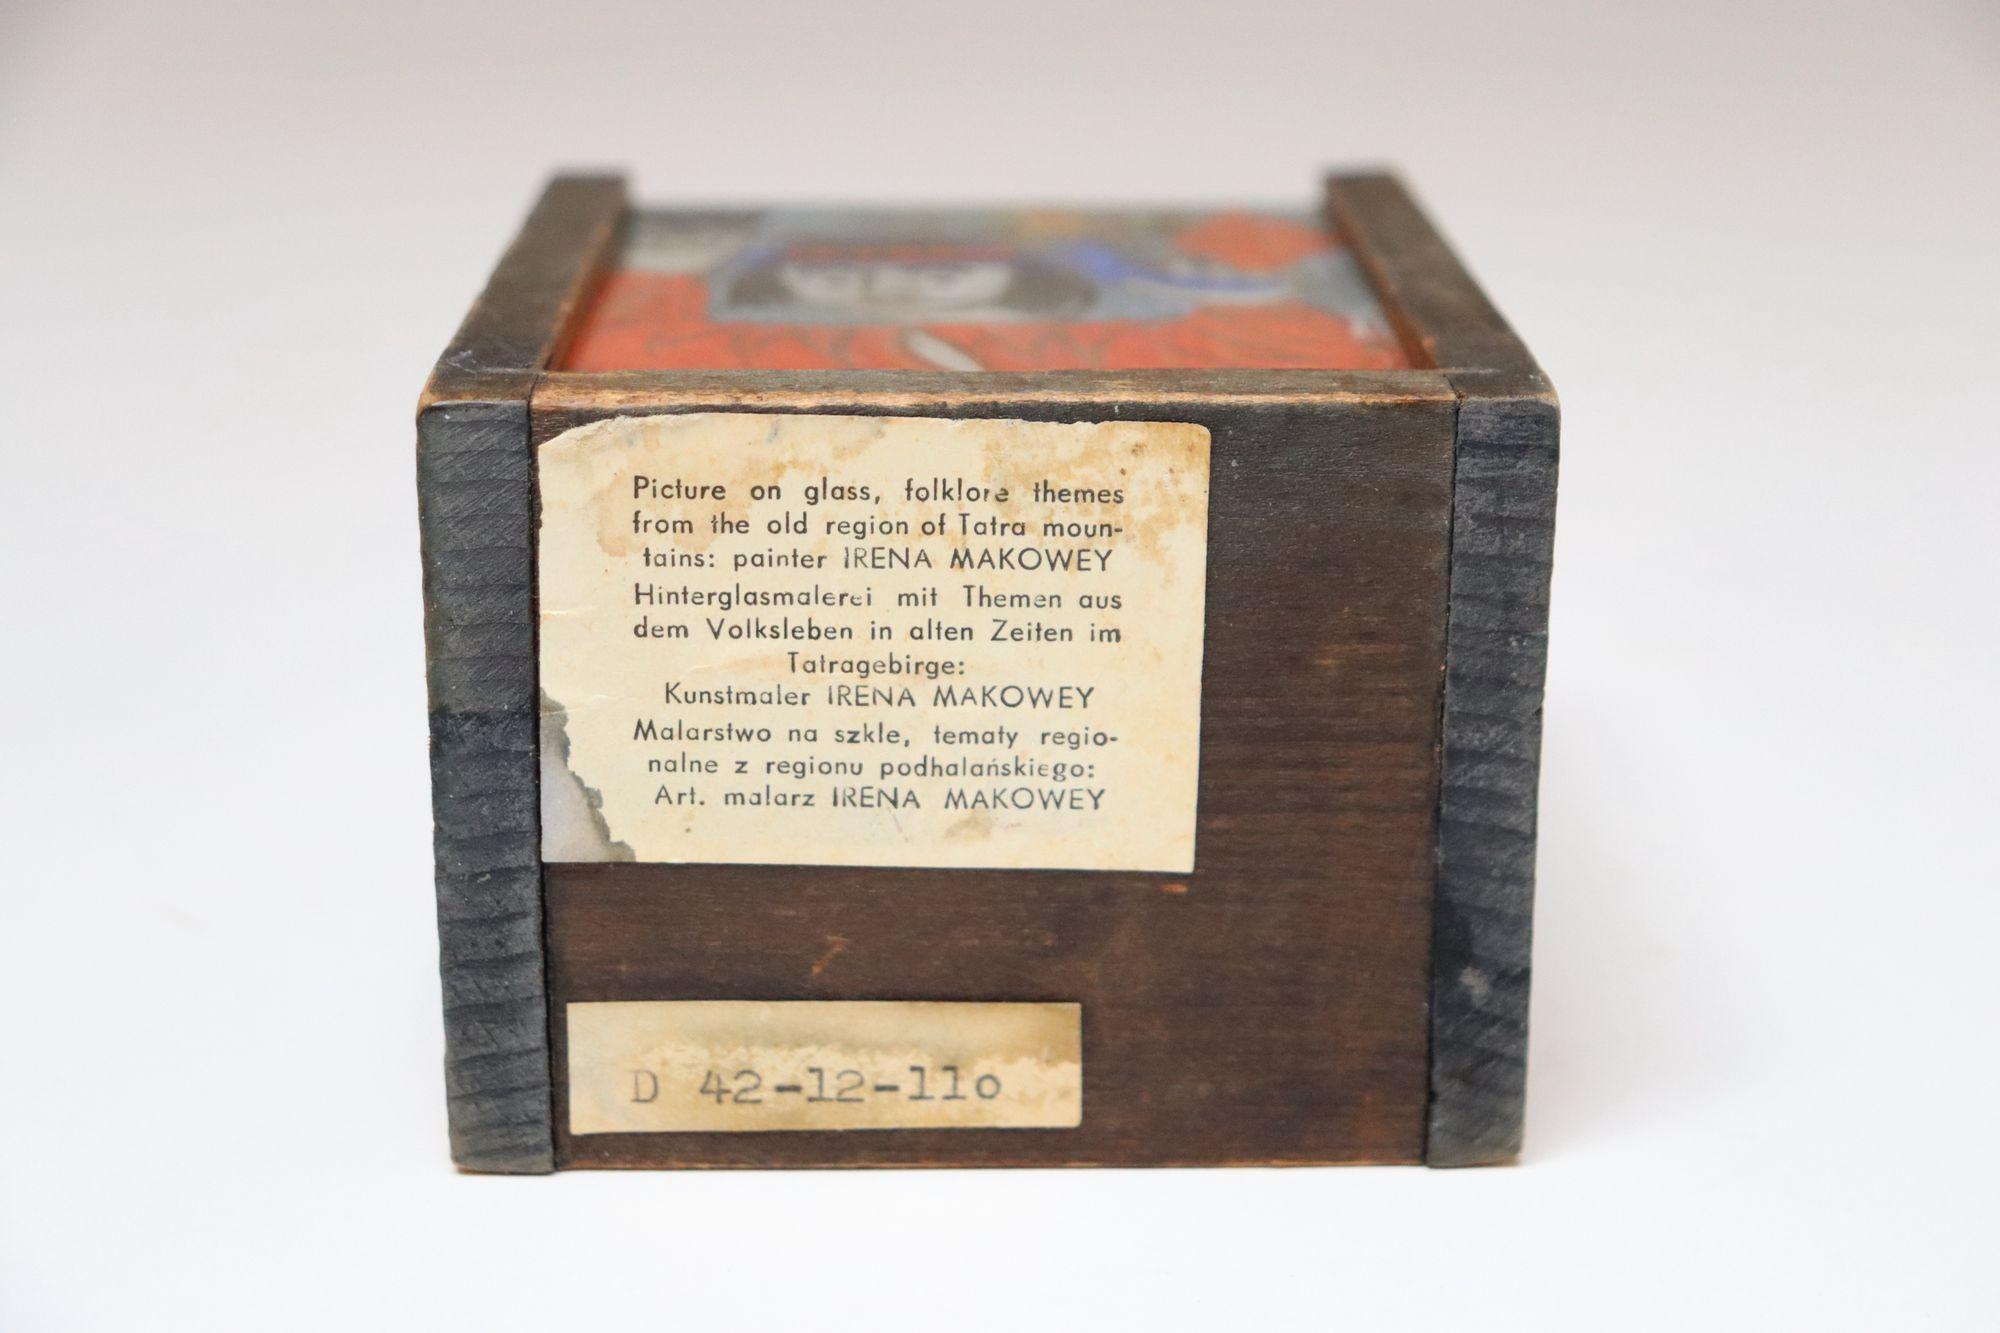 Picture on glass, folklore themes
from the old region of Tatra moun-
tains: painter IRENA MAKOWEY
Hinterglasmalerei mit Themen aus
dem Volksleben in alten Zeiten im
Tatragebirge:
Kunstmaler IRENA MAKOWEY
Malarstwo na szkle, tematy regio-
nalne z regionu podhalańskiego:
Art. malarz IRENA MAKOWEY
D 42-12-11o